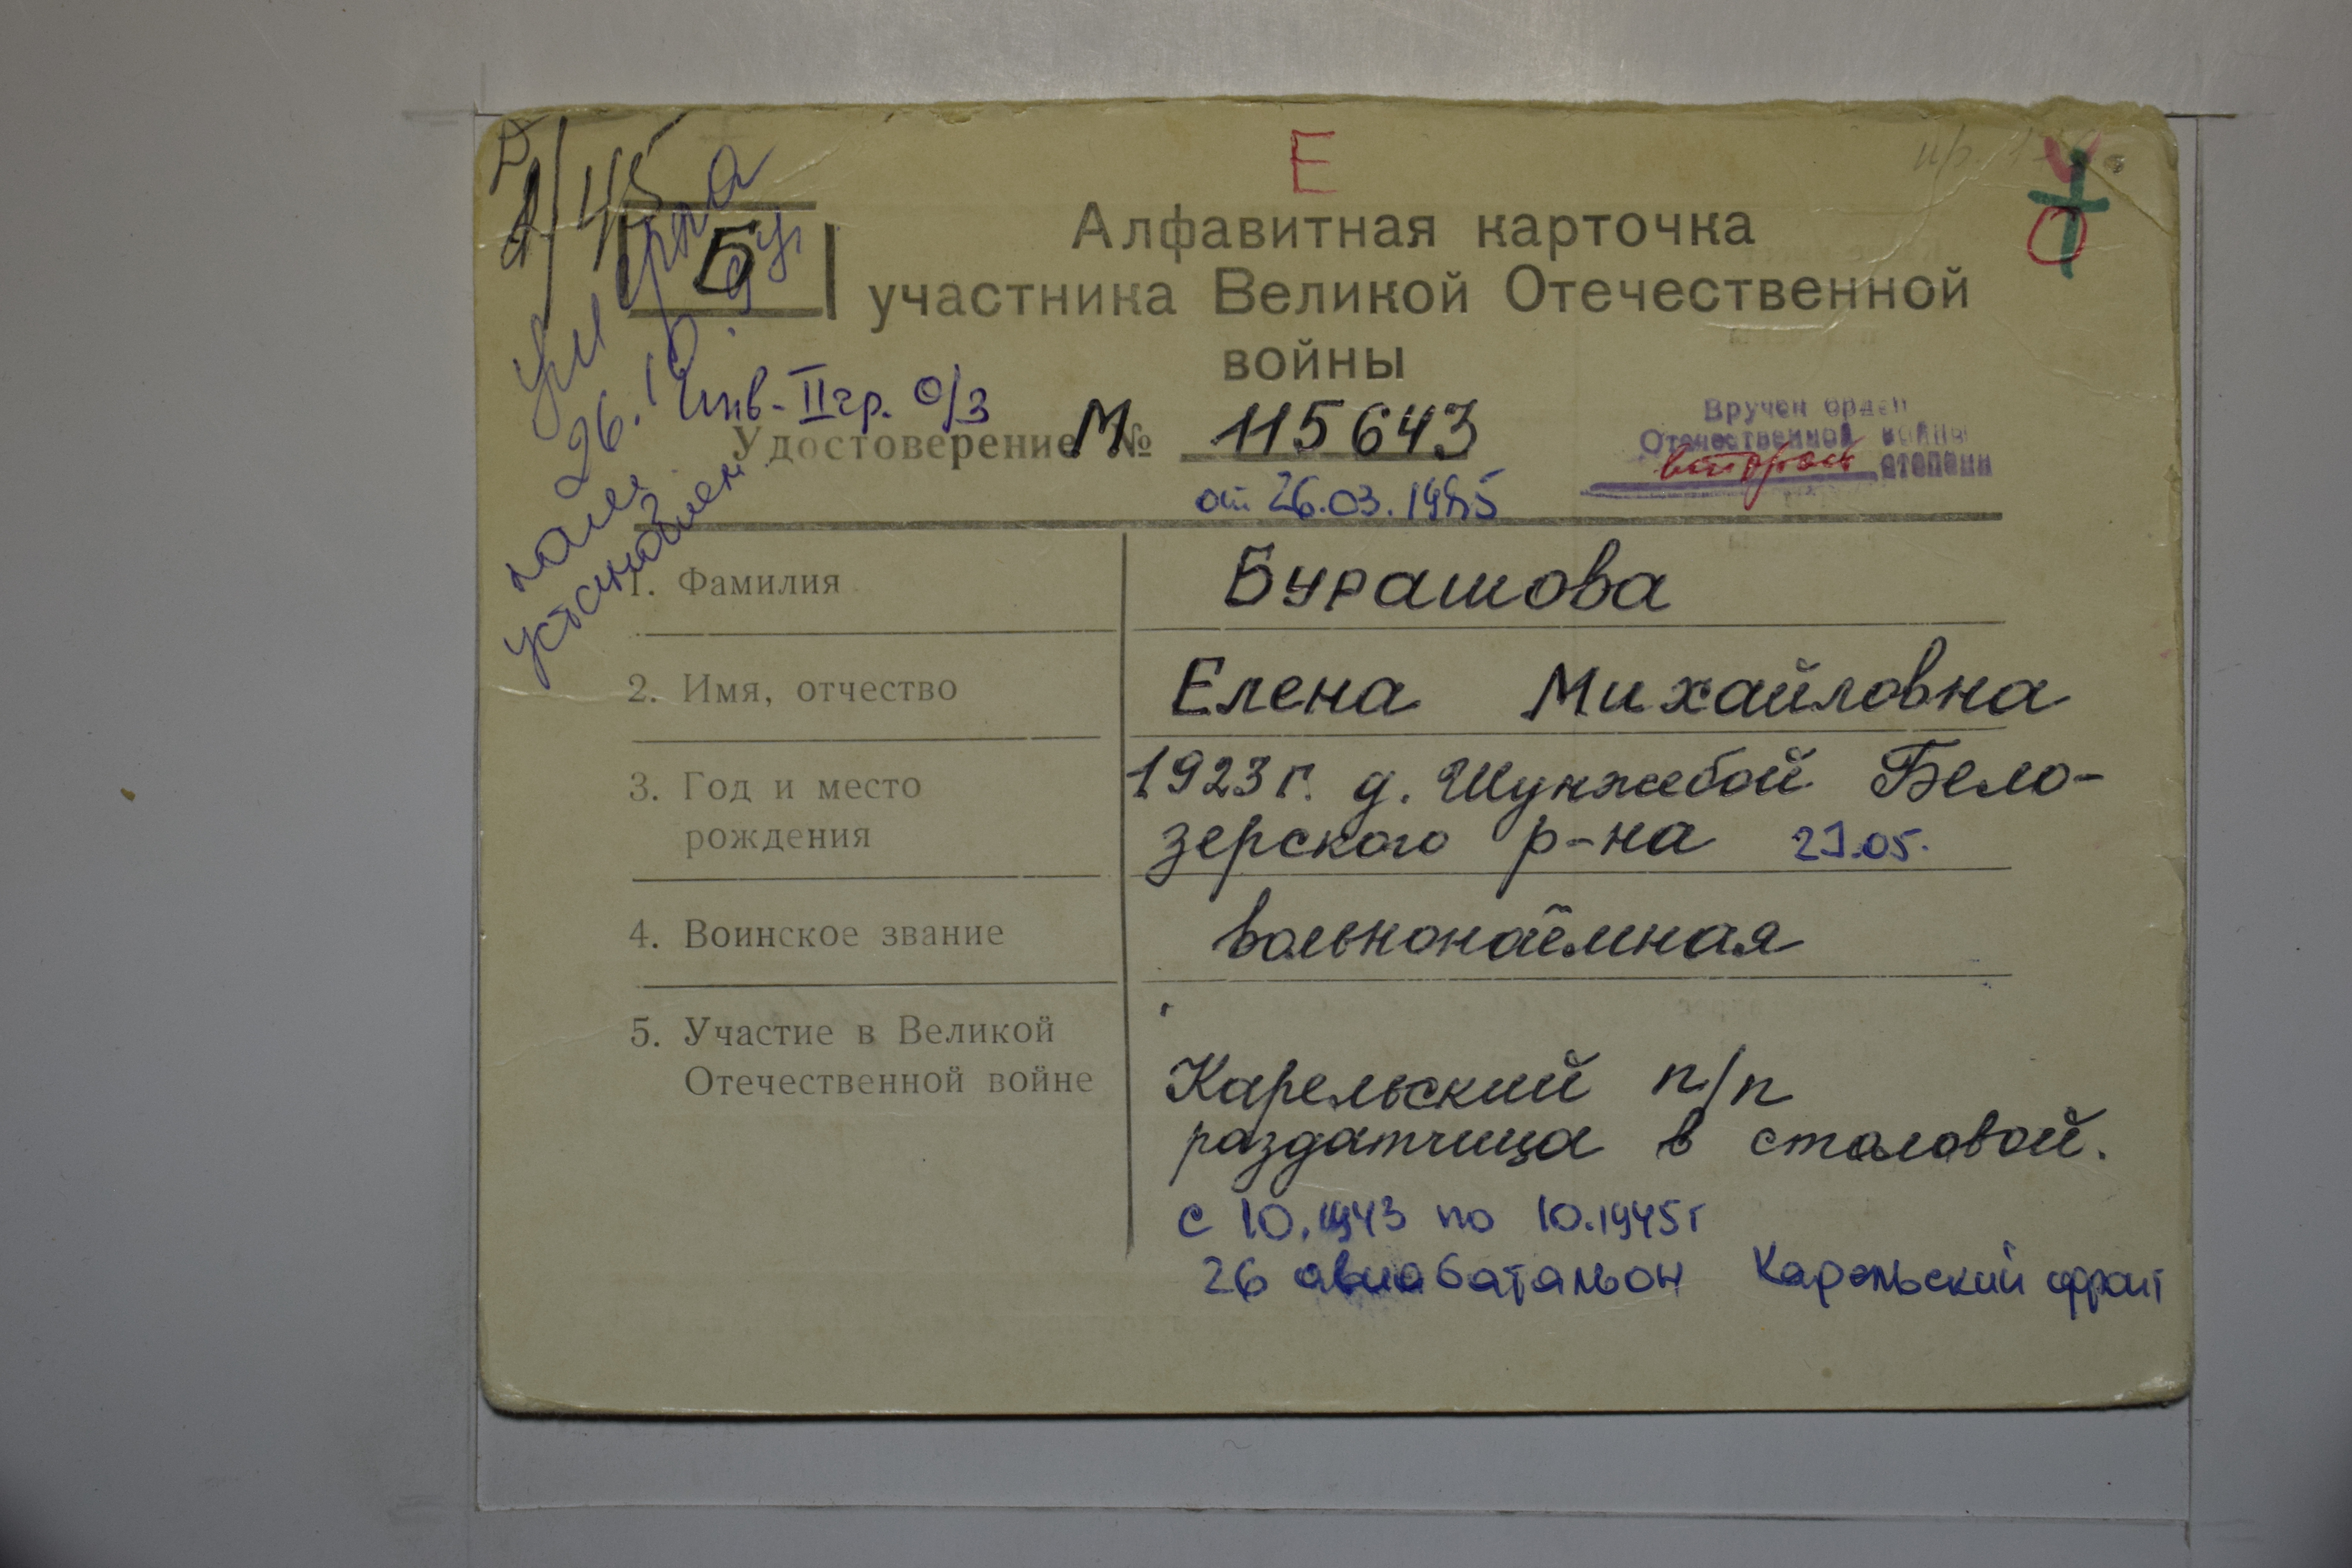 Е
Б
Алфавитная карточка
участника Великой Отечественной
войны
умерла
26.10.
инв-II гр. о/з
Удостоверение М № 115643
от 26.03.1985
Вручен орден
Отечественной войны
второй степени
пам.
установлен
1. Фамилия
Бурашова
2. Имя, отчество
Елена Михайловна
3. Год и место
рождения
1923 г. д. Шунжебой Бело-
зерского р-на 21.05.
4. Воинское звание
вольнонаёмная
5. Участие в Великой
Отечественной войне
Карельский п/п
раздатчица в столовой.
с 10.1943 по 10.1945 г
26 авиабатальон Карельский фронт